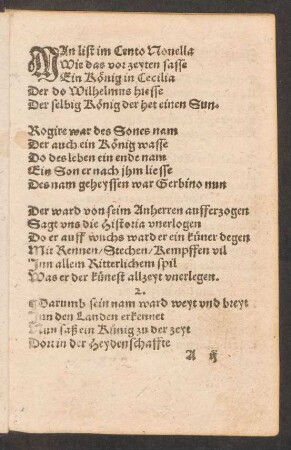 MAn list im Cento Nouella
Wie das vor zeyten sasse
Ein König in Cecilia
Der do Wilhelmus hiesse
Der selbig König der het einen Sun.
Rogire war des Sones nam
Der auch ein König wasse
Do des leben ein ende nam
Ein Son er nach jhm liesse
Des nam geheyssen war Gerbino nun
Der ward von seim Anherren aufferzogen
Sagt vns die Historia vnerlogen
Do er auff wuchs ward er ein küner degen
Mit Rennen/Stechen/Kempffen vil
Inn allem Ritterlichem spil
Was er der künest allzeyt vnerlegen.
2.
Darumb sein nam ward weyt vnd breyt
Inn den Landen erkennet
Nun saß ein Künig zu der zeyt
Dort in der Heydenschaffte
A ij